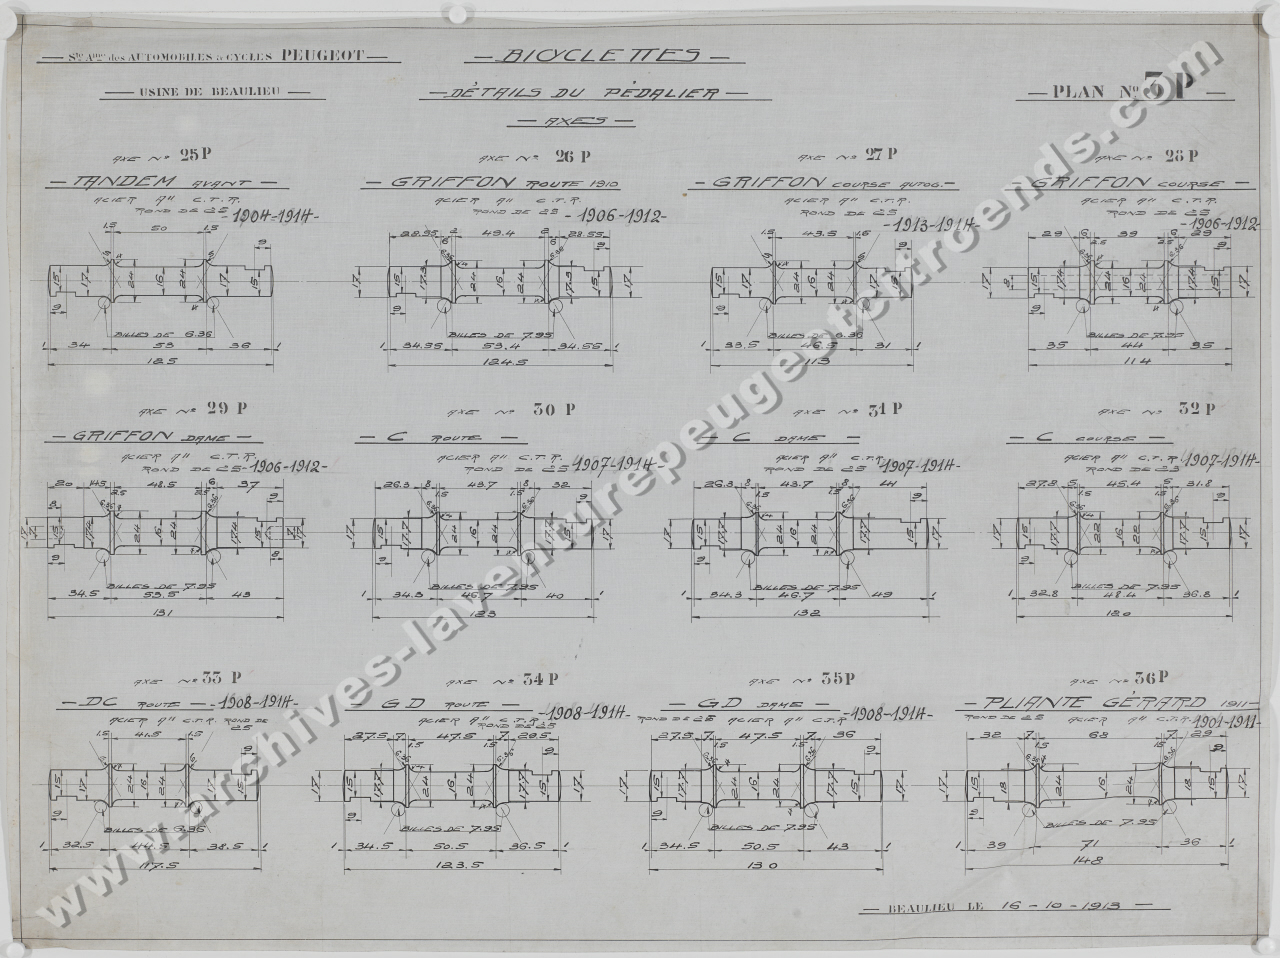 Sté Ame des AUTOMOBILES & CYCLES PEUGEOT
USINE DE BEAULIEU
BICYCLETTES
DÉTAILS DU PÉDALIER
AXES
PLAN No 3P
AXE No 25 P
TANDEM AVANT
ACIER A" C.T.R.
ROND DE 25 -1904-1914-
1.5 50 1.5
9
15 17 24 16 24 17 15
9
BILLES DE 6.35
1 34 53 36 1
125
AXE No 26 P
GRIFFON ROUTE 1910
ACIER A" C.T.R.
ROND DE 25 -1906-1912-
28.55 2 49.4 2 28.55
9
17 15 17.3 24 16 24 17.3 15 17
9
BILLES DE 7.95
1 34.55 53.4 34.55 1
124.5
AXE No 27 P
GRIFFON COURSE AUTOG.
ACIER A" C.T.R.
ROND DE 25 -1913-1914-
1.5 43.5 1.5
9
15 17 24 16 24 17 15
9
BILLES DE 6.35
1 33.5 46.5 31 1
113
AXE No 28 P
GRIFFON COURSE
ACIER A" C.T.R.
ROND DE 25 -1906-1912-
29 6 39 6 29
2.5 9
17 15 17.4 24 16 24 17.4 15 17
9
BILLES DE 7.95
1 35 44 35 1
114
AXE No 29 P
GRIFFON DAME
ACIER A" C.T.R.
ROND DE 25 -1906-1912-
20 14.5 48.5 6 37
2.5 2.5 9
17 15 17.4 24 16 24 17.4 15 17
9
BILLES DE 7.95
1 34.5 53.5 43 1
131
AXE No 30 P
C ROUTE
ACIER A" C.T.R.
ROND DE 25 -1907-1914-
26.3 8 43.7 8 32
1.5 1.5 9
17 15 17.7 24 16 24 17.7 15 17
9
BILLES DE 7.95
1 34.3 46.7 40 1
123
AXE No 31 P
C DAME
ACIER A" C.T.R.
ROND DE 25 -1907-1914-
26.3 8 43.7 8 41
1.5 1.5 9
17 15 17.7 24 16 24 17.7 15 17
9
BILLES DE 7.95
1 34.3 46.7 49 1
132
AXE No 32 P
C COURSE
ACIER A" C.T.R.
ROND DE 23 -1907-1914-
27.8 5 45.4 5 31.8
1.5 1.5 9
17 15 17.7 22 16 22 17.7 15 17
9
BILLES DE 7.95
1 32.8 48.4 36.8 1
120
AXE No 33 P
DC ROUTE -1908-1914-
ACIER A" C.T.R. ROND DE
25
1.5 41.5 1.5
9
15 17 24 16 24 17 15
9
BILLES DE 6.35
1 32.5 44.5 38.5 1
117.5
AXE No 34 P
GD ROUTE
ACIER A" C.T.R. -1908-1914-
ROND DE 25
27.5 7 47.5 7 29.5
1.5 1.5 9
17 15 17.7 24 16 24 17.7 15 17
9
BILLES DE 7.95
1 34.5 50.5 36.5 1
123.5
AXE No 35 P
GD DAME
ROND DE 25 ACIER A" C.T.R. -1908-1914-
27.5 7 47.5 7 36
1.5 1.5 9
17 15 17.7 24 16 24 17.7 15 17
9
BILLES DE 7.95
1 34.5 50.5 43 1
130
AXE No 36 P
PLIANTE GÉRARD 1911
ROND DE 25 ACIER A" C.T.R. -1901-1911-
32 7 68 7 29
1.5 1.5 9
17 15 18 24 16 24 18 15 17
9
BILLES DE 7.95
1 39 71 36 1
148
BEAULIEU LE 16-10-1913
www.archives-laventurepeugeotcitroends.com